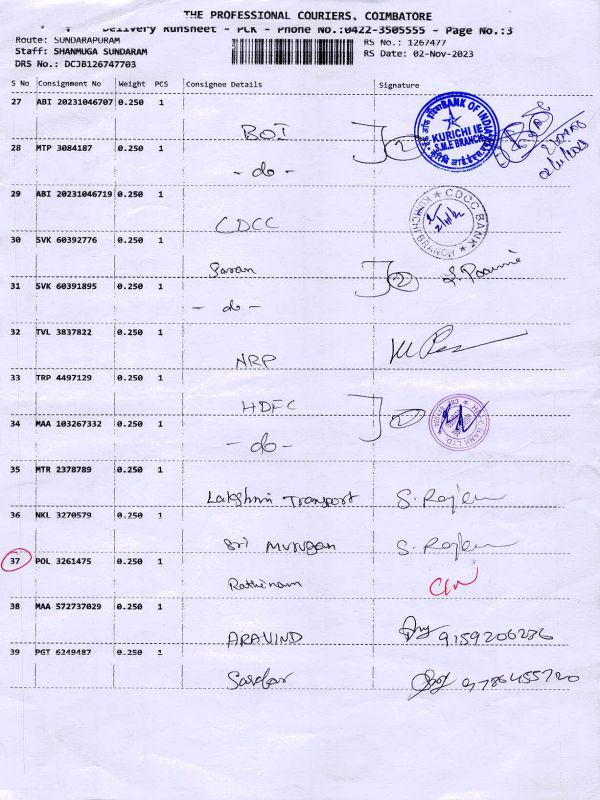 THE PROFESSIONAL COURIERS, COIMBATORE
Delivery Runsheet - PCK - Phone No.:0422-3505555 - Page No.:3
Route: SUNDARAPURAM
RS No.: 1267477
Staff: SHANMUGA SUNDARAM
RS Date: 02-Nov-2023
DRS No.: DCJB126747703
S No Consignment No Weight PCS Consignee Details Signature
27 ABI 20231046707 0.250 1
BOI
BANK OF INDIA
KURICHI IE
S.M.E BRANCH
2
02/11/2023
28 MTP 3084187 0.250 1
- do -
29 ABI 20231046719 0.250 1
CDCC
CDCC BANK
KURICHI BRANCH
30 SVK 60392776 0.250 1
Saran
2
31 SVK 60391895 0.250 1
- do -
32 TVL 3837822 0.250 1
NRP
33 TRP 4497129 0.250 1
HDFC
2
34 MAA 103267332 0.250 1
- do -
35 MTR 2378789 0.250 1
Lakshmi Transport
36 NKL 3270579 0.250 1
Sri Murugan
37 POL 3261475 0.250 1
Rathinam
38 MAA 572737029 0.250 1
ARAVIND
9159206236
39 PGT 6249487 0.250 1
9786455720